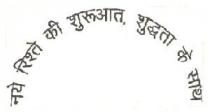 नये रिश्ते की शुरूआत, शुद्धता के साथ